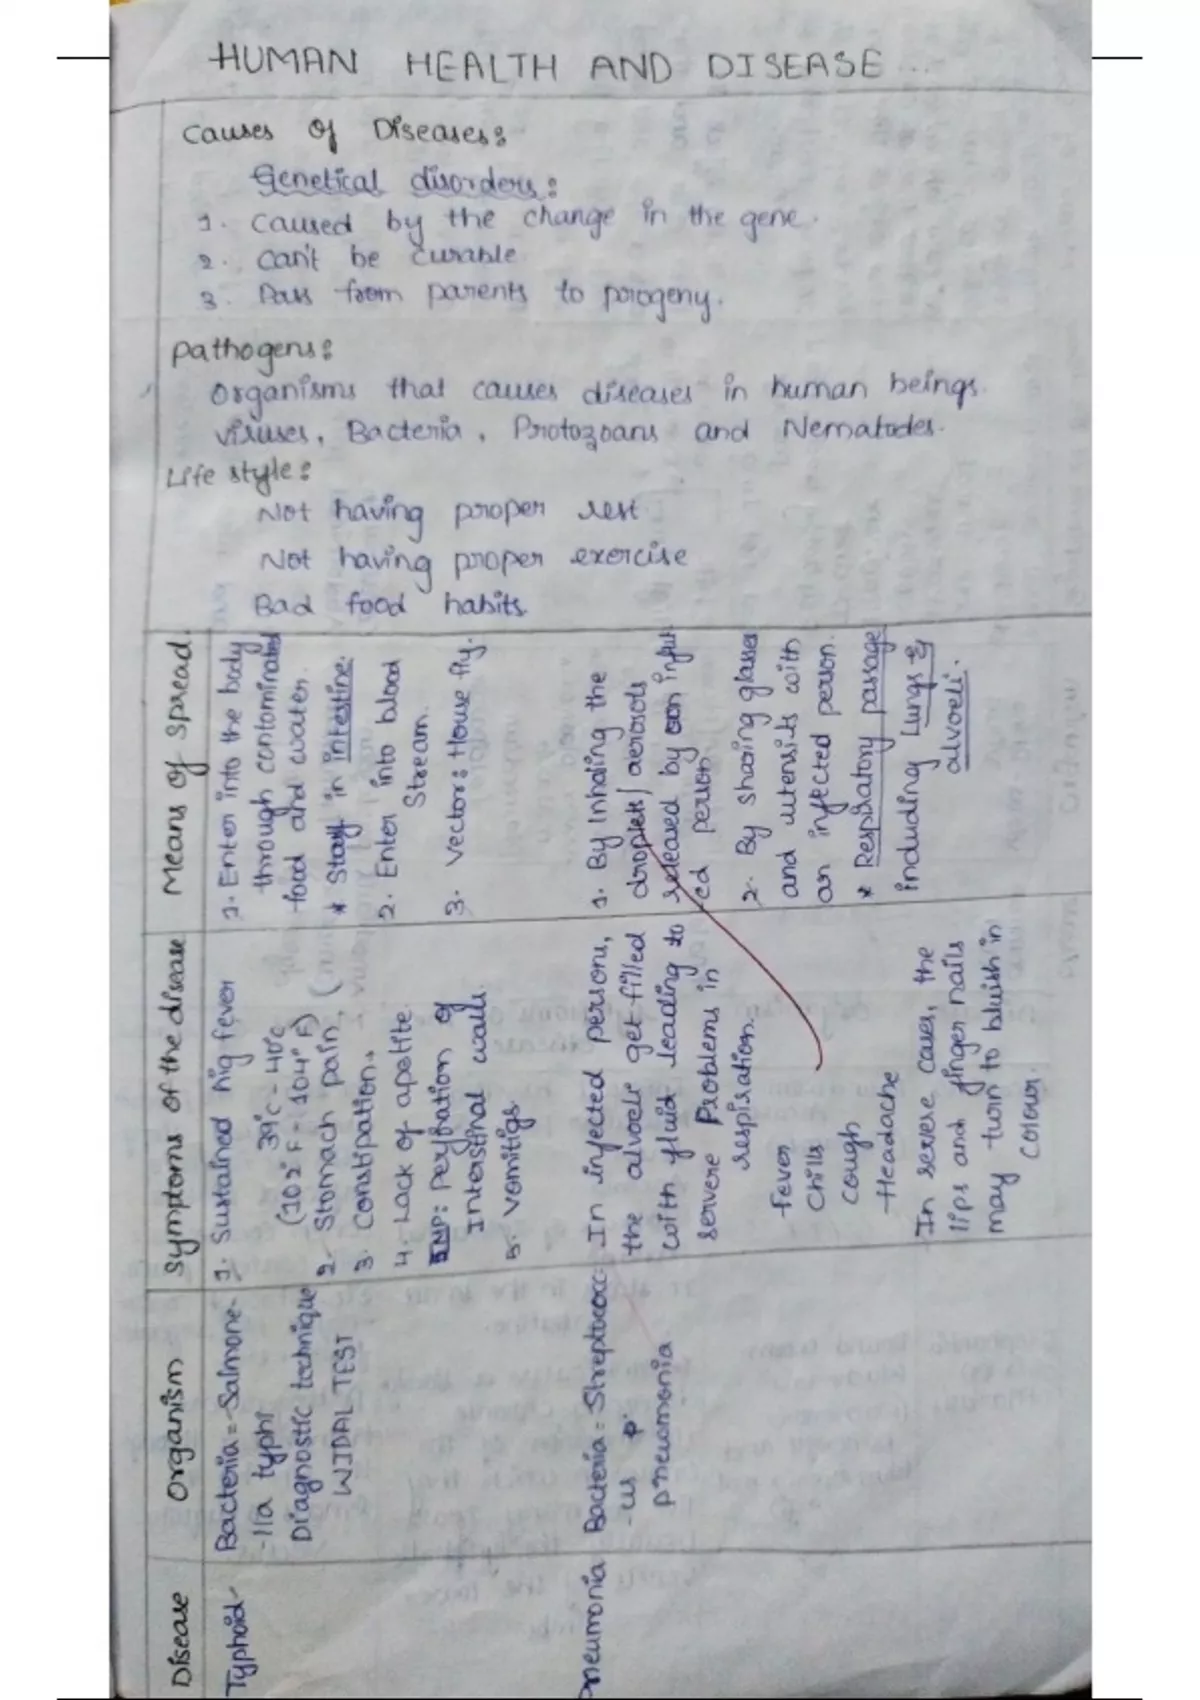 HUMAN HEALTH AND DISEASE...
Causes of Diseases:
Genetical disorders:
1. Caused by the change in the gene.
2. Can't be curable
3. Pass from parents to progeny.
Pathogens:
Organisms that causes diseases in human beings.
Viruses, Bacteria, Protozoans and Nematodes.
Life style:
Not having proper rest
Not having proper exercise
Bad food habits.
Disease
Organism
Symptoms of the disease
Means of Spread.
Typhoid-
Bacteria = Salmone-
-lla typhi
Diagnostic technique
WIDAL TEST
1. Sustained hig fever
39°C - 40°C
(102°F - 104°F)
2. Stomach pain,
3. Constipation.
4. Lack of apetite.
IMP: Perforation of
Interstinal walls.
5. Vomitigs.
1. Enter into the body
through contominated
food and water.
* Stay in intestine.
2. Enter into blood
Stream.
3. Vector: House fly.
Pneumonia
Bacteria = Streptococc-
-us
pneumonia
In infected persons,
the alvoeli get filled
with fluid leading to
servere Problems in
respiration.
fever
Chills
Cough
Headache
In servere cases, the
lips and finger nails
may turn to bluish in
colour.
1. By Inhaling the
droplets/aerosols
released by an infect-
-ed person
2. By sharing glasses
and utensils with
an infected person.
* Respiratory passage
including Lungs &
alvoeli.